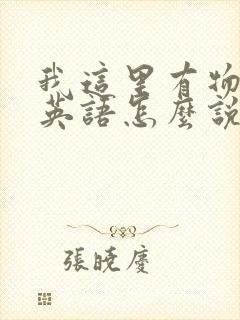 我這里有物
英語怎麼說
張曉慶